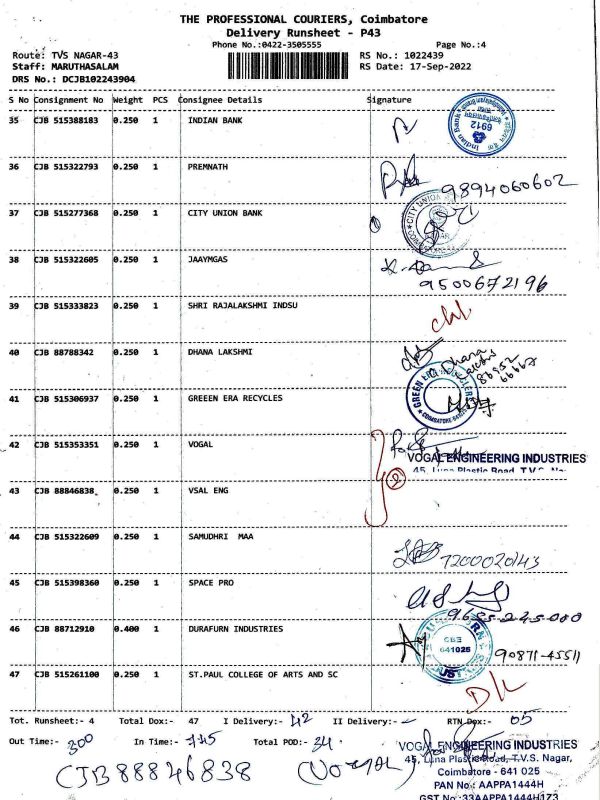 THE PROFESSIONAL COURIERS, Coimbatore
Delivery Runsheet - P43
Phone No.:0422-3505555 Page No.:4
Route: TVS NAGAR-43 RS No.: 1022439
Staff: MARUTHASALAM RS Date: 17-Sep-2022
DRS No.: DCJB102243904
S No Consignment No Weight PCS Consignee Details Signature
35 CJB 515388183 0.250 1 INDIAN BANK
Indian Bank
6912
36 CJB 515322793 0.250 1 PREMNATH
9894060602
37 CJB 515277368 0.250 1 CITY UNION BANK
CITY UNION
38 CJB 515322605 0.250 1 JAAYMGAS
9500672196
39 CJB 515333823 0.250 1 SHRI RAJALAKSHMI INDSU
40 CJB 88788342 0.250 1 DHANA LAKSHMI
Dhana
86952
66667
41 CJB 515306937 0.250 1 GREEEN ERA RECYCLES
GREEN ERA RECYCLERS
COIMBATORE
42 CJB 515353351 0.250 1 VOGAL
VOGAL ENGINEERING INDUSTRIES
45, Luna Plastic Road, T.V.S. Na
43 CJB 88846838 0.250 1 VSAL ENG
2
44 CJB 515322609 0.250 1 SAMUDHRI MAA
7200020143
45 CJB 515398360 0.250 1 SPACE PRO
9655-245-000
46 CJB 88712910 0.400 1 DURAFURN INDUSTRIES
CBE
641025
90871-45511
47 CJB 515261100 0.250 1 ST.PAUL COLLEGE OF ARTS AND SC
D/L
Tot. Runsheet:- 4 Total Dox:- 47 I Delivery:- 42 II Delivery:- - RTN Dox:- 05
Out Time:- 300 In Time:- 745 Total POD:- 34
CJB 88846838
VOGAL ENGINEERING INDUSTRIES
45, Luna Plastic Road, T.V.S. Nagar,
Coimbatore - 641 025
PAN No : AAPPA1444H
GST No :33AAPPA1444H1Z3